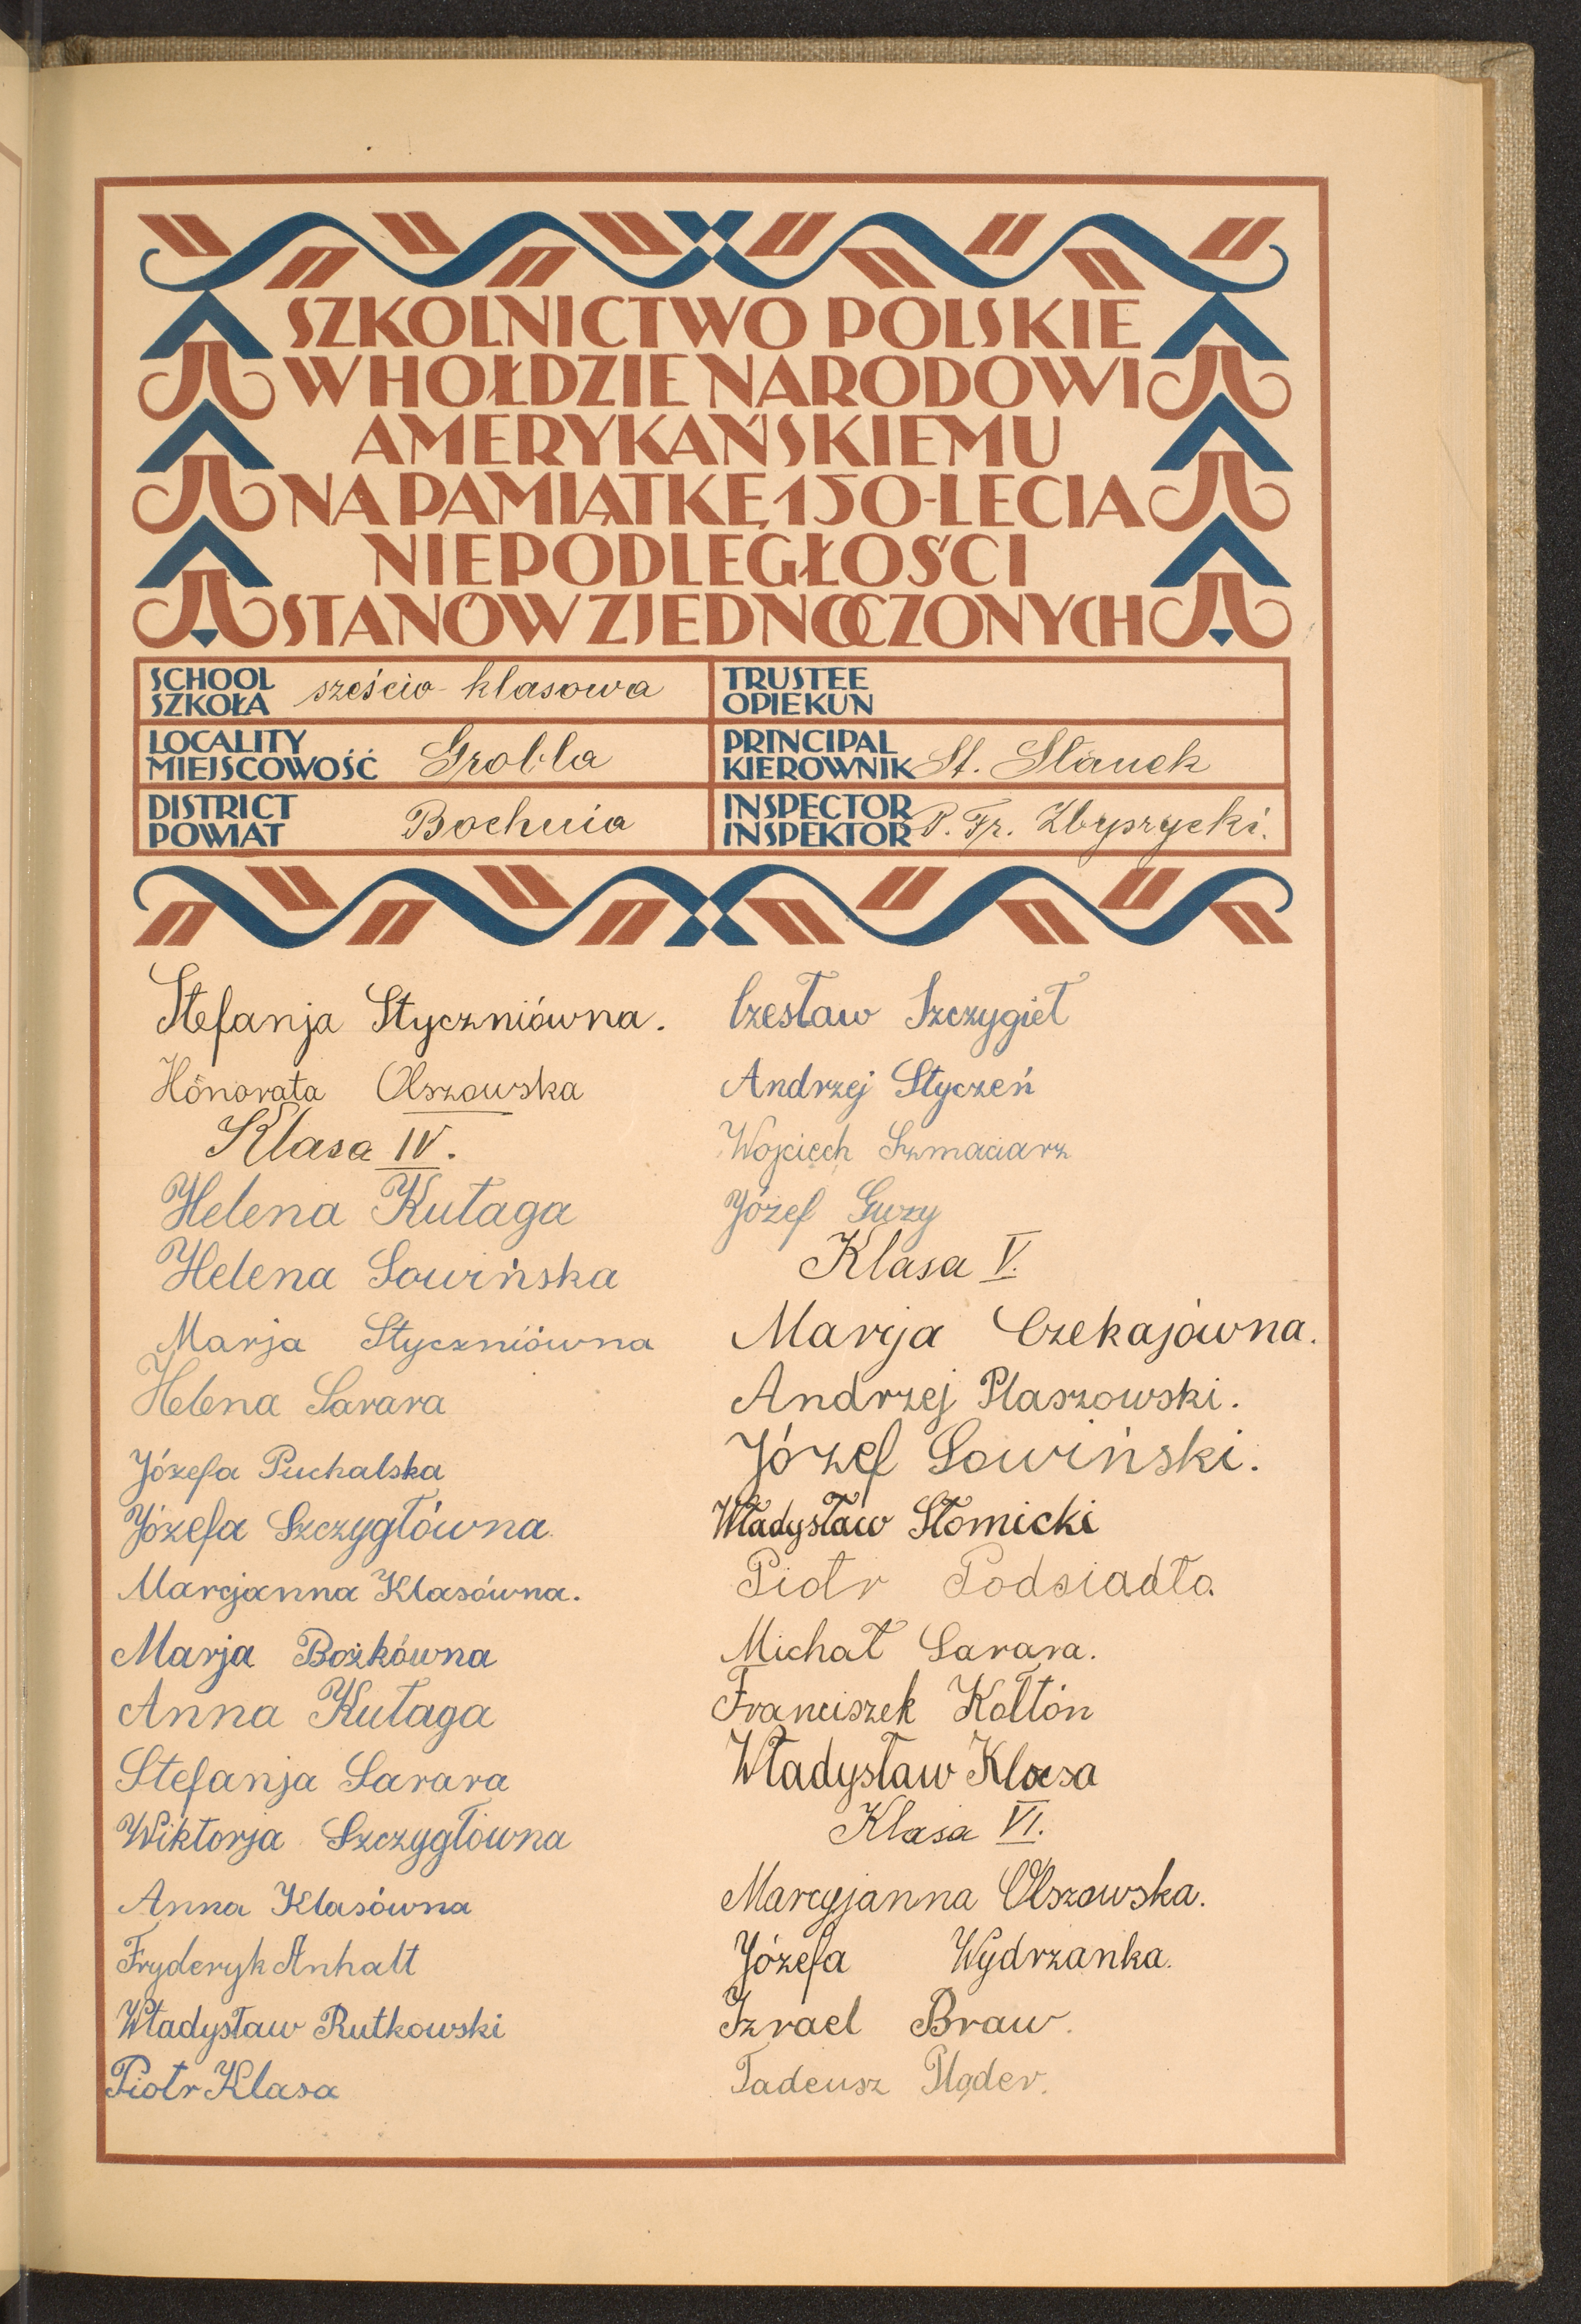 SZKOLNICTWO POLSKIE
W HOŁDZIE NARODOWI
AMERYKAŃSKIEMU
NA PAMIĄTKĘ 150-LECIA
NIEPODLEGŁOŚCI
STANÓW ZJEDNOCZONYCH
SCHOOL
SZKOŁA sześcio-klasowa
TRUSTEE
OPIEKUN
LOCALITY
MIEJSCOWOŚĆ Grobla
PRINCIPAL
KIEROWNIK St. Stanek
DISTRICT
POWIAT Bochnia
INSPECTOR
INSPEKTOR P. Fr. Zbyszycki.
Stefanja Styczniówna.
Honorata Olszowska
Klasa IV.
Helena Kułaga
Helena Sowińska
Marja Styczniówna
Helena Sarara
Józefa Puchalska
Józefa Szczygłówna
Marcjanna Klasówna.
Marja Bożkówna
Anna Kułaga
Stefanja Sarara
Wiktorja Szczygłówna
Anna Klasówna
Fryderyk Anhalt
Władysław Rutkowski
Piotr Klasa
Czesław Szczygieł
Andrzej Styczeń
Wojciech Szmaciarz
Józef Guzy
Klasa V.
Marja Czekajówna.
Andrzej Płaszowski.
Józef Sowiński.
Władysław Słomicki
Piotr Podsiadło.
Michał Sarara.
Franciszek Kołtón
Władysław Klasa
Klasa VI.
Marcyjanna Olszowska.
Józefa Wydrzanka.
Izrael Braw.
Tadeusz Pląder.